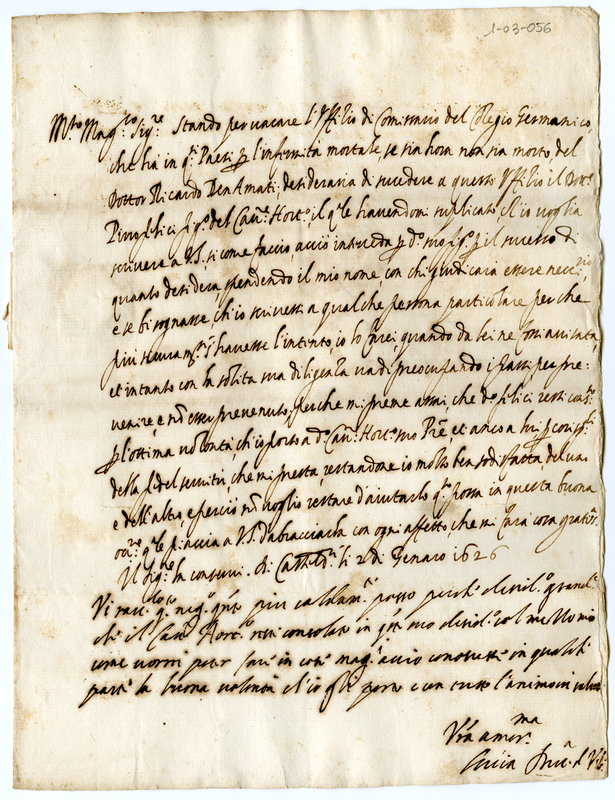 1-03-056
Mto Mag.co Sig.re Stando per vacare l'Uffitio di Comissario del Colegio Germanico,
che hà in q.ti Paesi p l'infermità mortale, se sin hora non sia morto, del
Dottor Ricardo BenAmati, desideraria di succedere a questo Uffitio il Dott.
felici fig.o del Cau.r Hort.o, il q.le havendomi suplicato ch'io voglia
scrivere a V.S., si come faccio, acciò interceda p d.o suo fig.o p il successo di
quanto desidera spendendo il mio nome, con chi giudicarà essere necc.rio
e se bisognasse, ch'io scrivessi a qualche persona particolare perche
più sicuram.te s'havesse l'intento, io lo farei, quando da lei ne fossi avisata,
et intanto con la solita sua diligenza vadi preocupando i passi per pre:
venire, e nõ esser prevenuto, perche mi preme assai, che d.o felici resti
p l'ottima volontà, ch'io porto a d.o Cau.r Hort.o suo Prē, et anco a lui p
della servitù, che mi presta, restandone io molto ben sodisfatta, del uno
e dell'altro, e perciò nõ voglio restare d'aiutarlo q.to posso in questa buona
occ.ne q.le piaccia a V.S. d'abbracciarla con ogni affetto, che mi sarà cosa gratis.ma
Il Sig.re la conservi. di li 2 di Genaro 1626
Vi racc.do q.to neg.o q.nto più caldam.te posso perche desid.o grand.te
che il Cau.r Hort.o resti consolato in q.sto suo desid.o col mezzo mio
come vorrei poter fare in cose mag.ri acciò conoscesse in qualche
parte la buona volontà ch'io gli porto e con tutto l'animo mi
Vra amor.ma